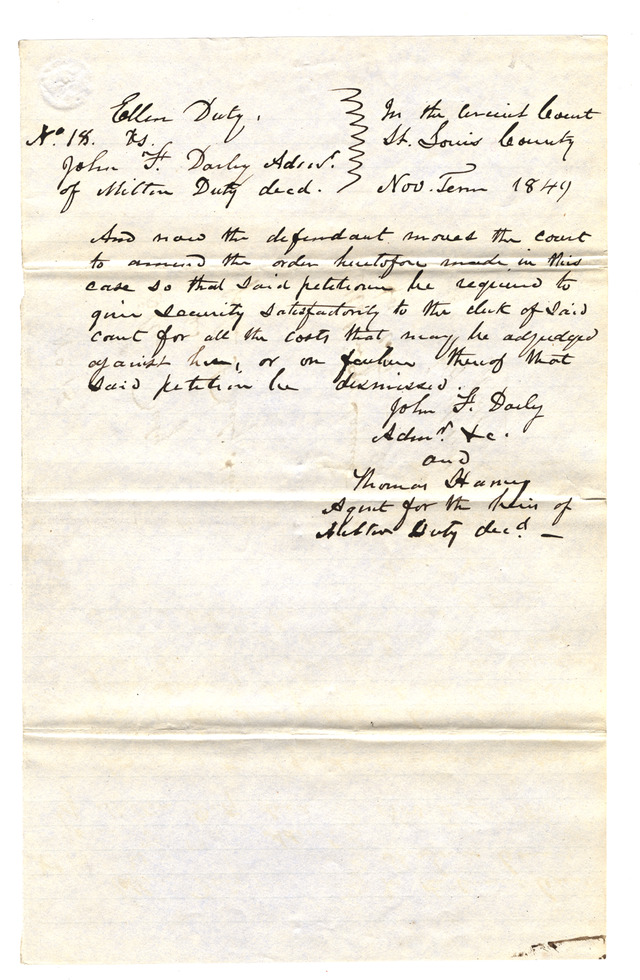 Ellen Duty.
No. 18. vs.
John F. Darby Admr.
of Milton Duty decd.
In the Circuit Court
St. Louis County
Nov. Term 1849
And now the defendant moves the court
to amend the order heretofore made in this
case so that said petitioner be required to
give security satisfactority to the clerk of said
court for all the costs that may be adjudged
against her, or on failure thereof that
said petition be dismissed.
John F. Darby
Admr. &c.
and
Thomas Harney
Agent for the heirs of
Milton Duty decd. —